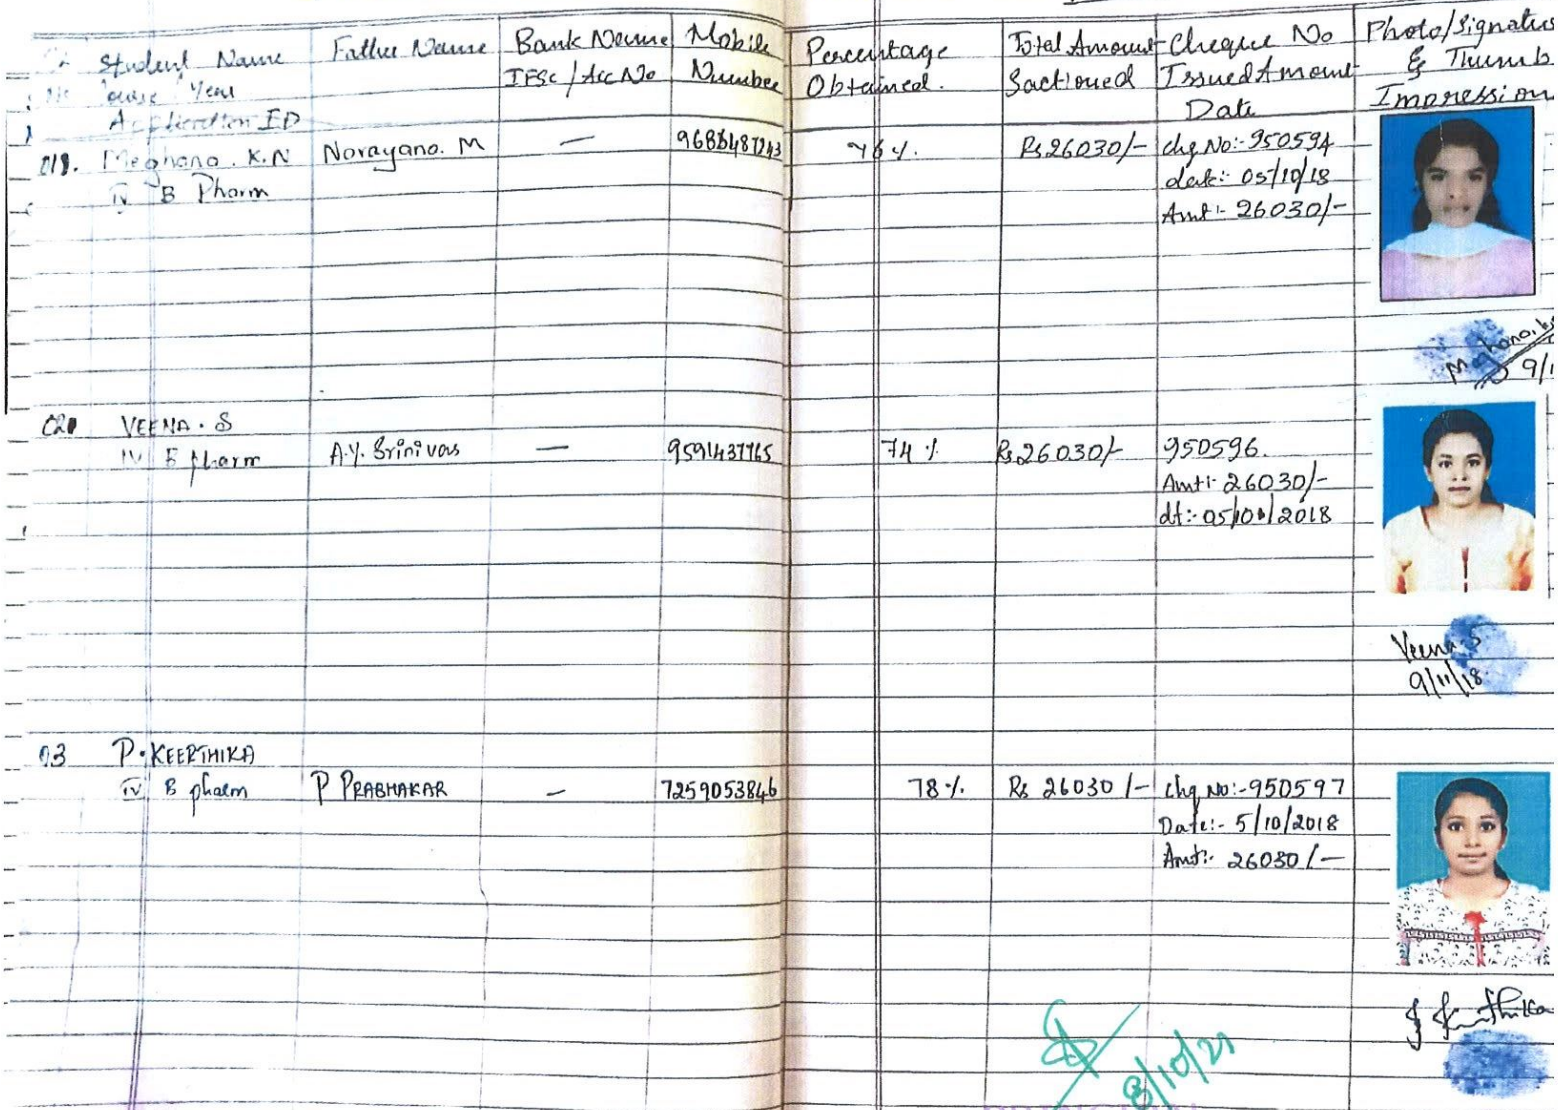 Student Name
Father Name
Bank Name
IFSC / Acc No
Mobile
Number
Percentage
Obtained.
Total Amount
Sactioned
Cheque No
Issued Amount
Date
Photo/Signatu
& Thumb
Impression
Year
Application ID
Meghana. K.N
Narayana. M
—
76%.
Rs 26030/-
chq No:- 950594
IV B Pharm
date:- 05/10/18
Amt:- 26030/-
Meghana.k
9/1
VEENA. S
IV B Pharm
A.Y. Srinivas
—
9591437765
74 %
Rs 26030/-
950596.
Amt:- 26030/-
dt:- 05/10/2018
Veena.S
9/11/18
03
P. KEERTHIKA
IV B pharm
P PRABHAKAR
—
7259053846
78%.
Rs 26030 /-
chq No:- 950597
Date:- 5/10/2018
Amt:- 26030/-
8/10/21